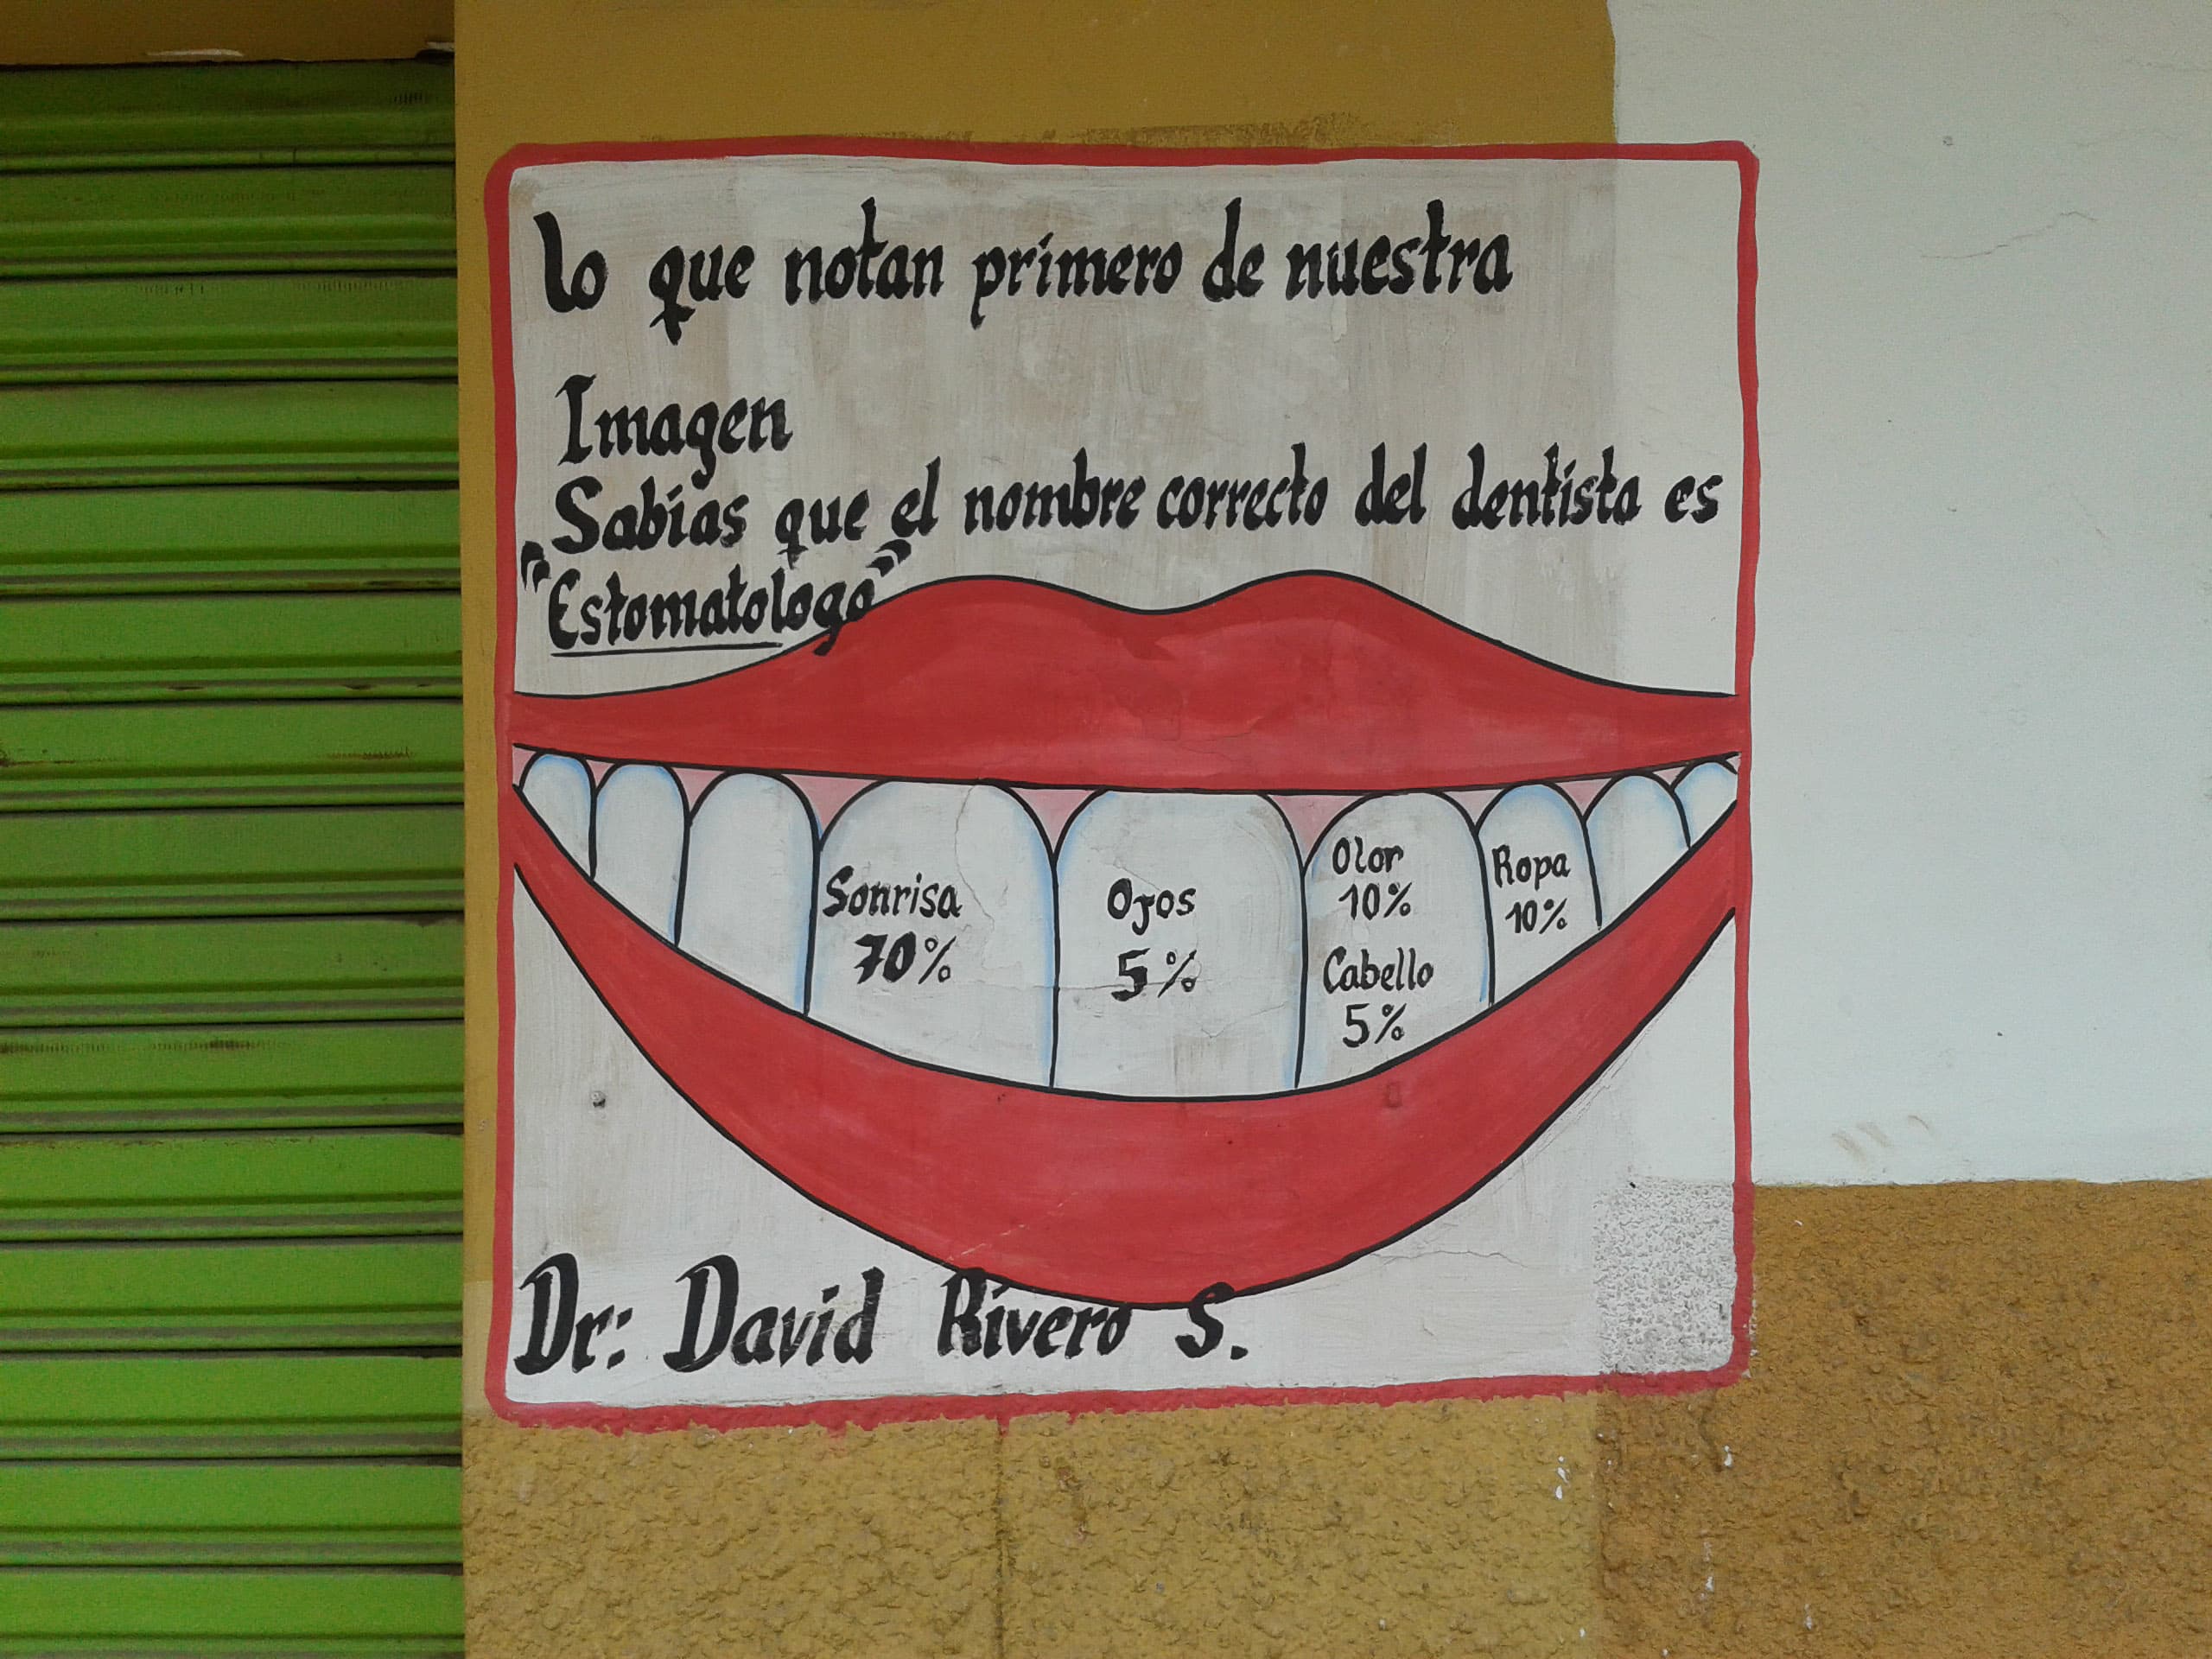 lo que notan primero de nuestra
Imagen
Sabias que el nombre correcto del dentista es
"Estomatologo"
Sonrisa
70%
Ojos
5%
Olor
10%
Cabello
5%
Ropa
10%
Dr: David Rivero S.